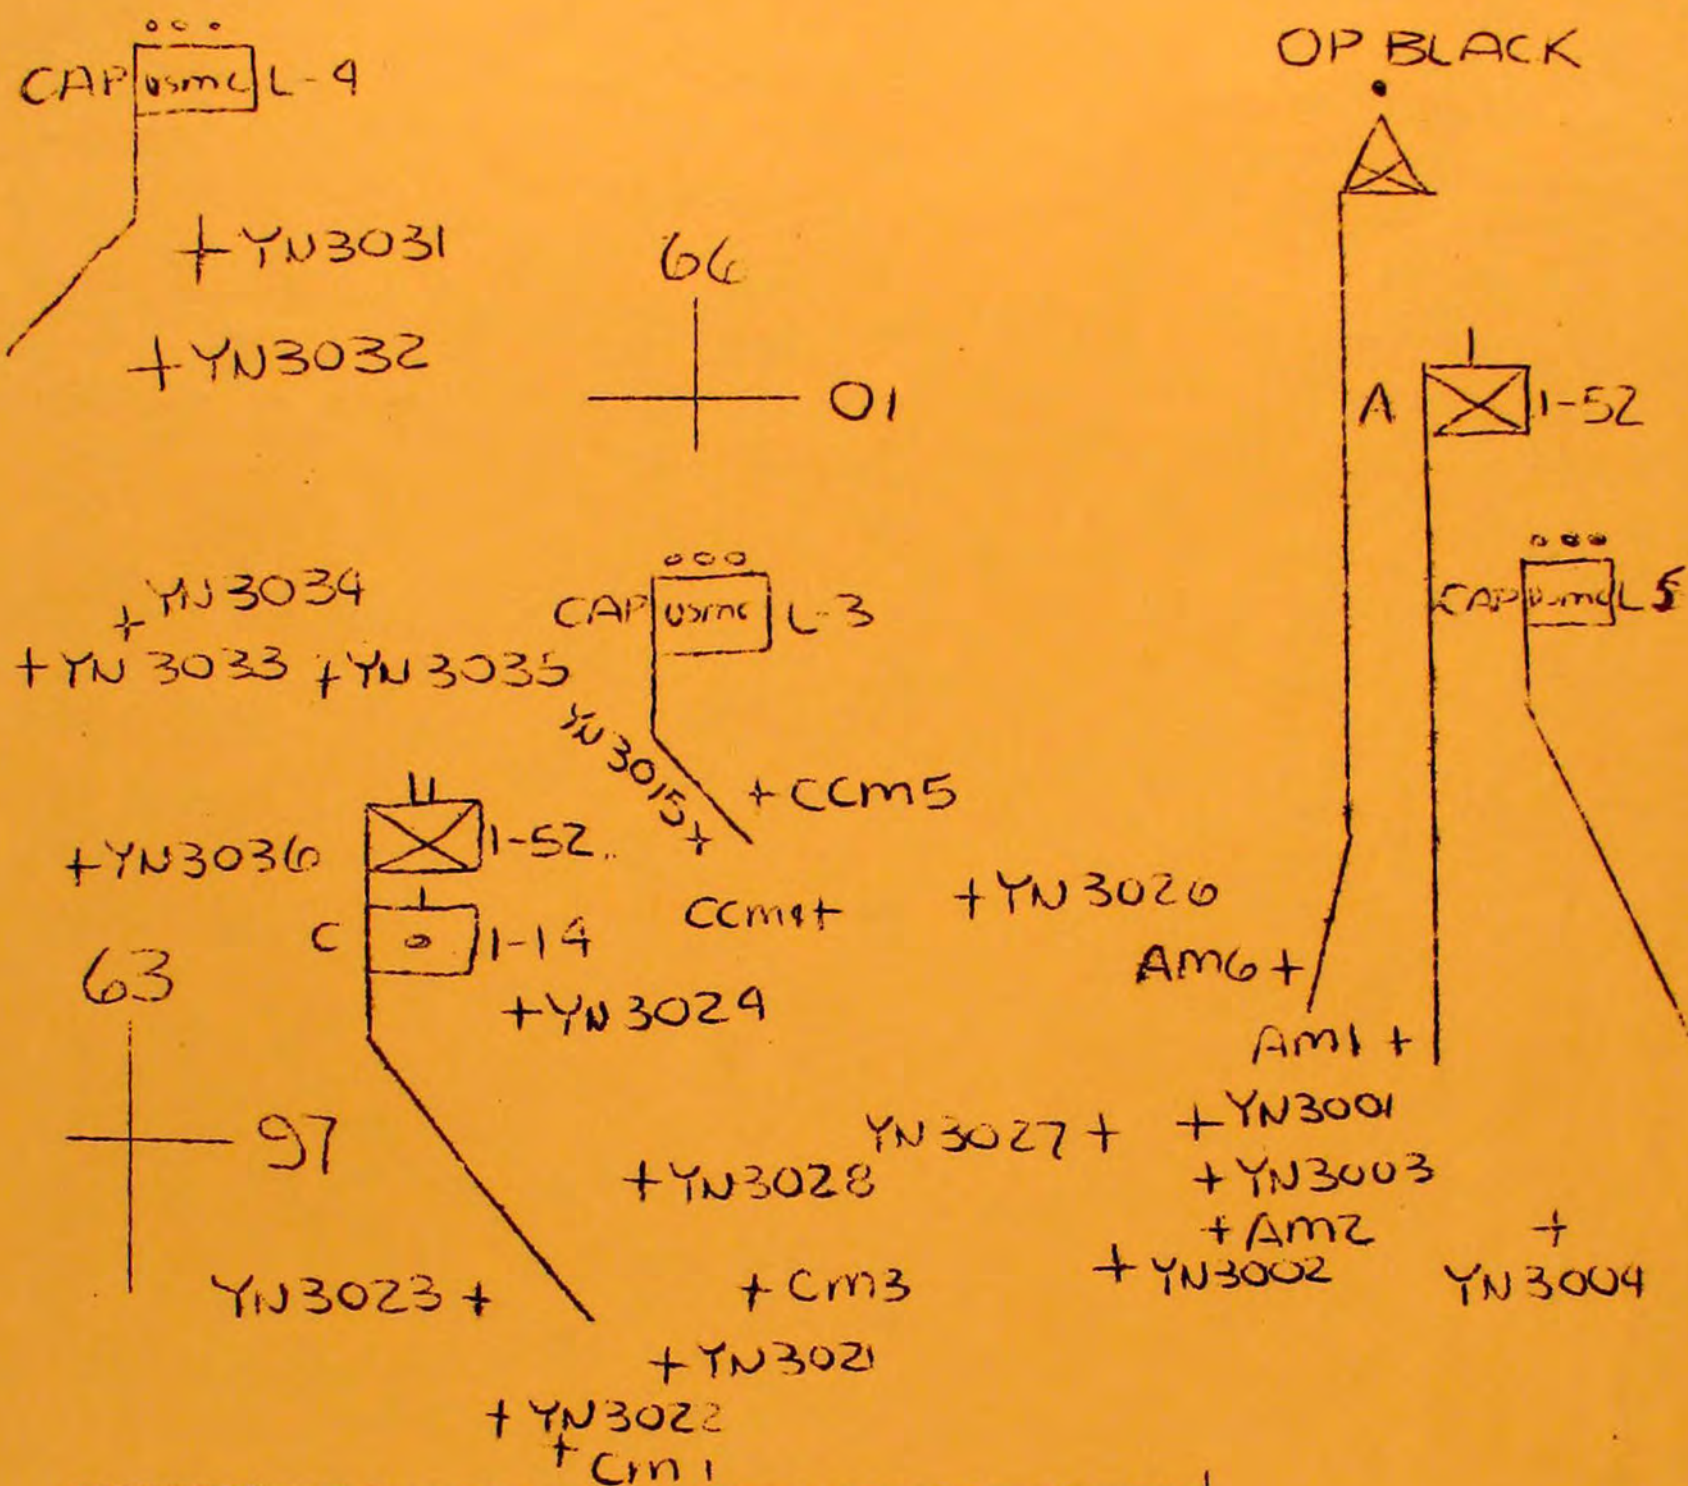 OP BLACK
CAP usmc L-4
+ YN3031
66
+ YN3032
01
A 1-52
YN3034
CAP usmc L-3
CAP usmc L 5
+ YN 3033 + YN 3035
YN 3015 +
+ CCM5
+ YN3036
1-52
CCM4 +
+ YN 3026
C 1-14
63
AM6 +
+ YN 3024
AM1 +
+ YN3001
97
YN 3027 +
+ YN3028
+ YN3003
+ AM2
+ YN3002
YN 3004
YN3023 +
+ CM3
+ YN3021
+ YN3022
+ CM1